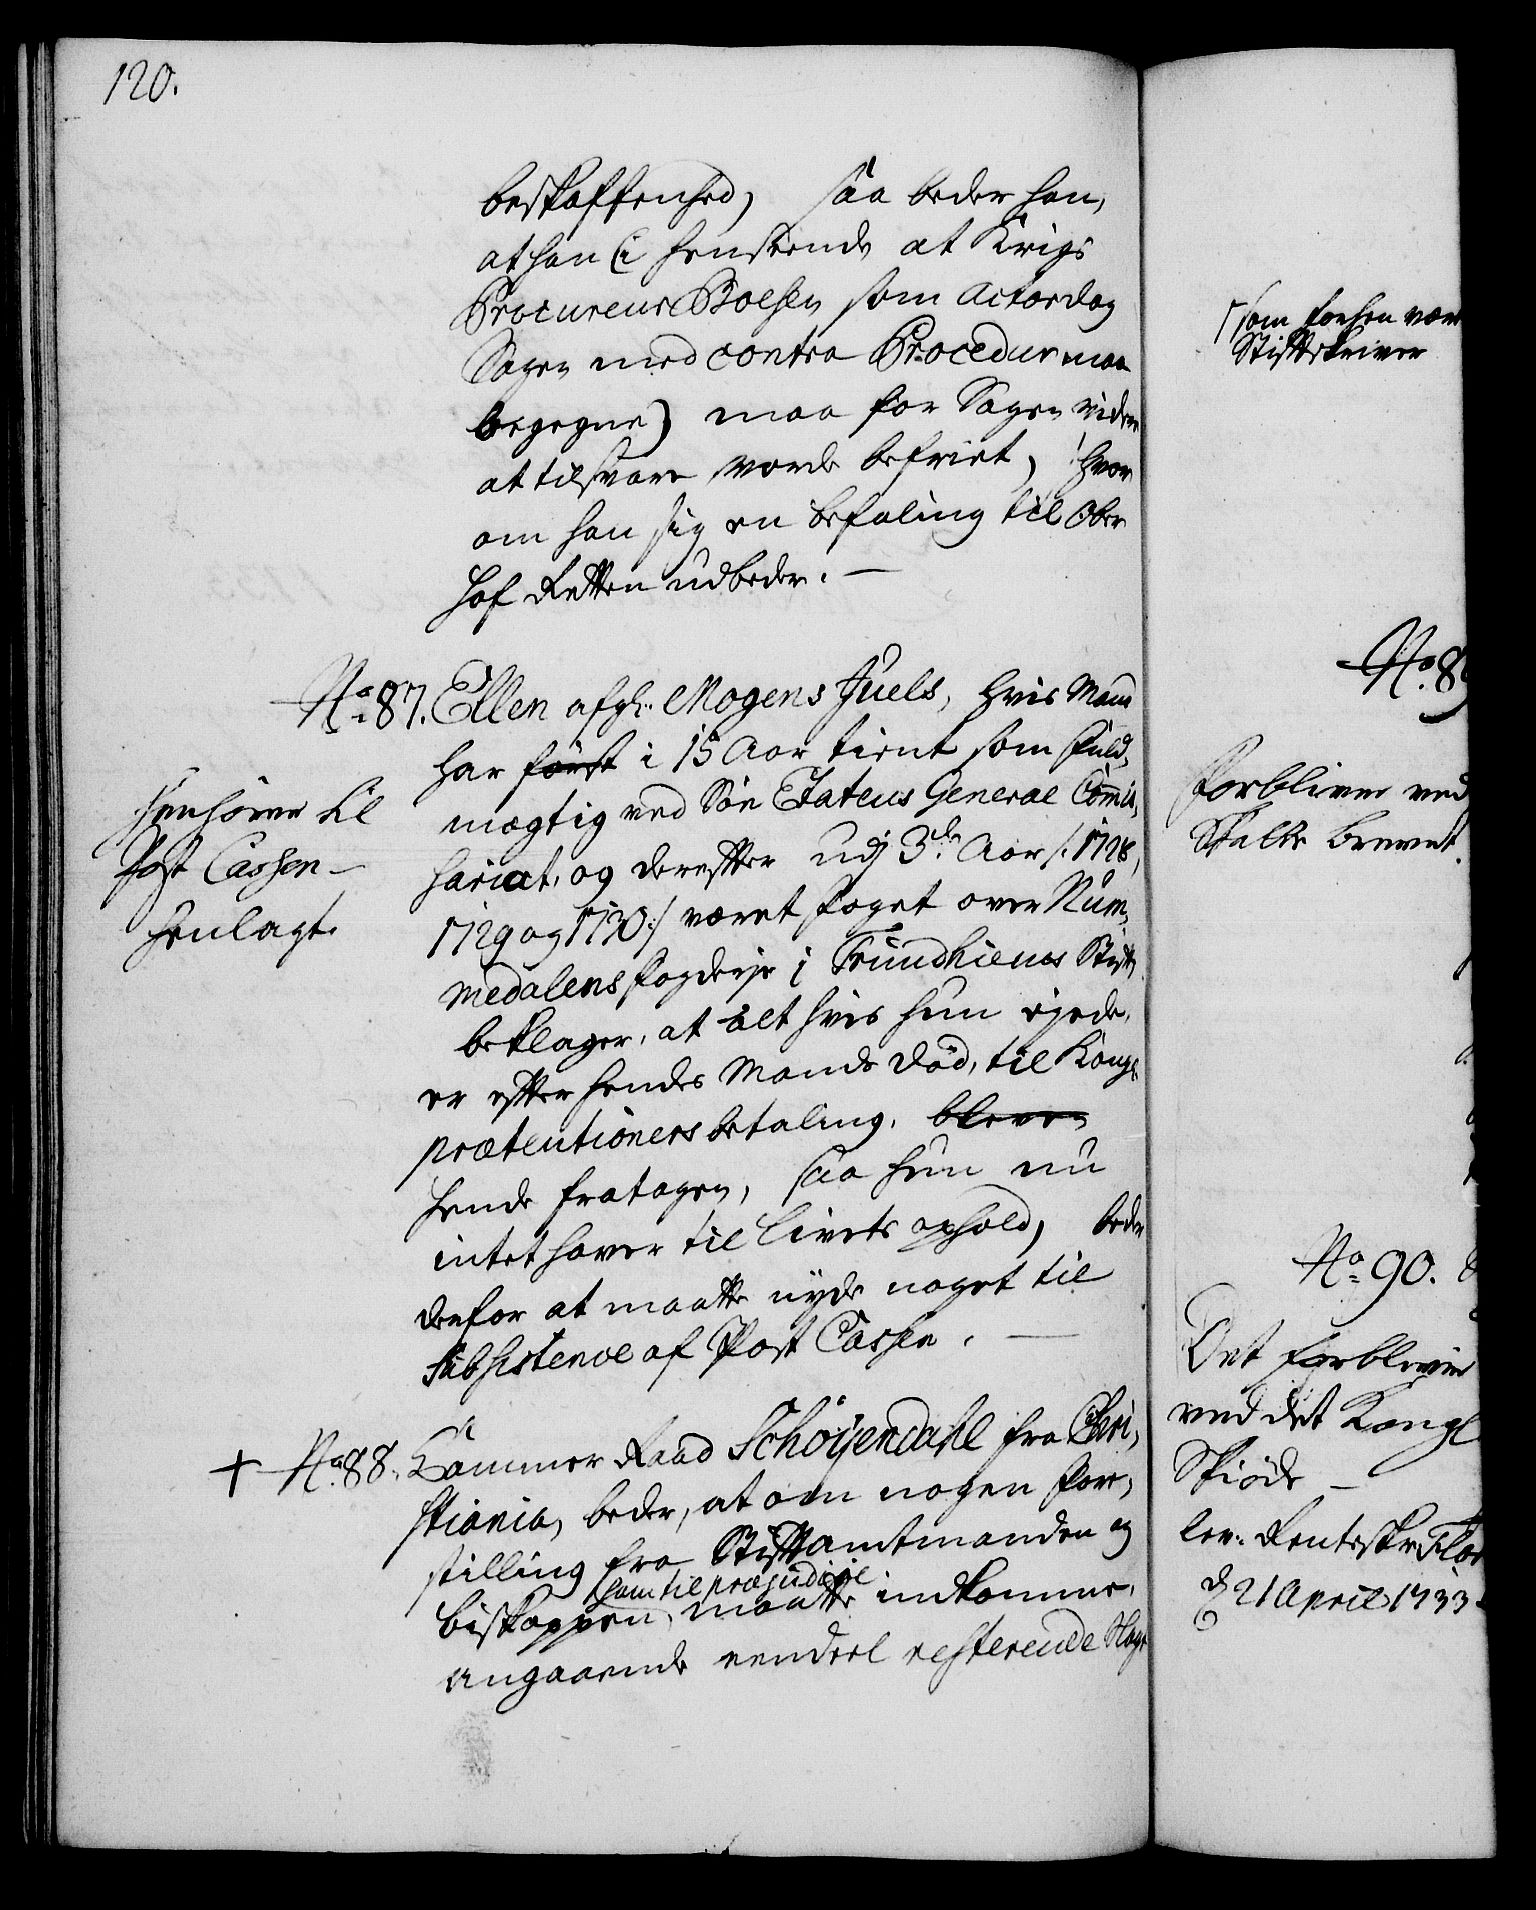 120.
beskaffenhed, saa beder han,
at han (i henseende at Krigs
Procureur Boesen som Actor dog
Sagen med contra Procedur maa
begegne) maa for Sagen videre
at tilsvare vorde befriet, hvor
om han sig en befaling til Ober
Hof Retten udbeder. —
No 87. Ellen afgl: Mogens Juels, hvis Mand
har først i 15 Aar tient som Fuld,
mægtig ved Søe Etatens General Commis,
sariat, og derefter udj 3de Aar /: 1728,
1729 og 1730 :/ været Foget over Num,
medalens Fogderje i Trundhiems Stift
beklager, at alt hvis hun ejede,
er efter hendes Mands død, til Kongl.
prætentioners betaling, bleven
hende fratagen, saa hun nu
intet haver til livets ophold, beder
derfor at maatte nyde noget til
subsistence af Post Cassen. —
Henhører til
Post Cassen —
henlagt.
+ No 88. Cammer Raad Schøyendahl fra Chri,
stiania, beder, at om nogen Fore,
stilling fra Stiftamtmanden og
ham til præjudice
biskoppen, maatte indkomme,
angaaende eendeel resterende
som forhen være
Stiftskriver
No 89
Forbliver ved
Skatte brevet.
No 90.
Det forbliver
ved det Kongl
Skiøde —
lev: Renteskr:
d 21 April 1733